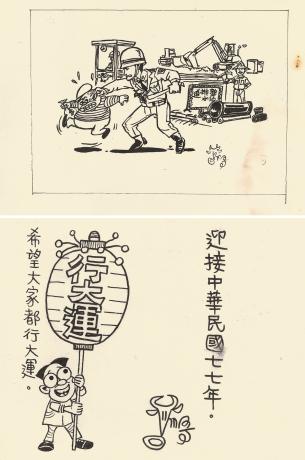 迎接中華民國七七年。
行大運
希望大家都行大運。